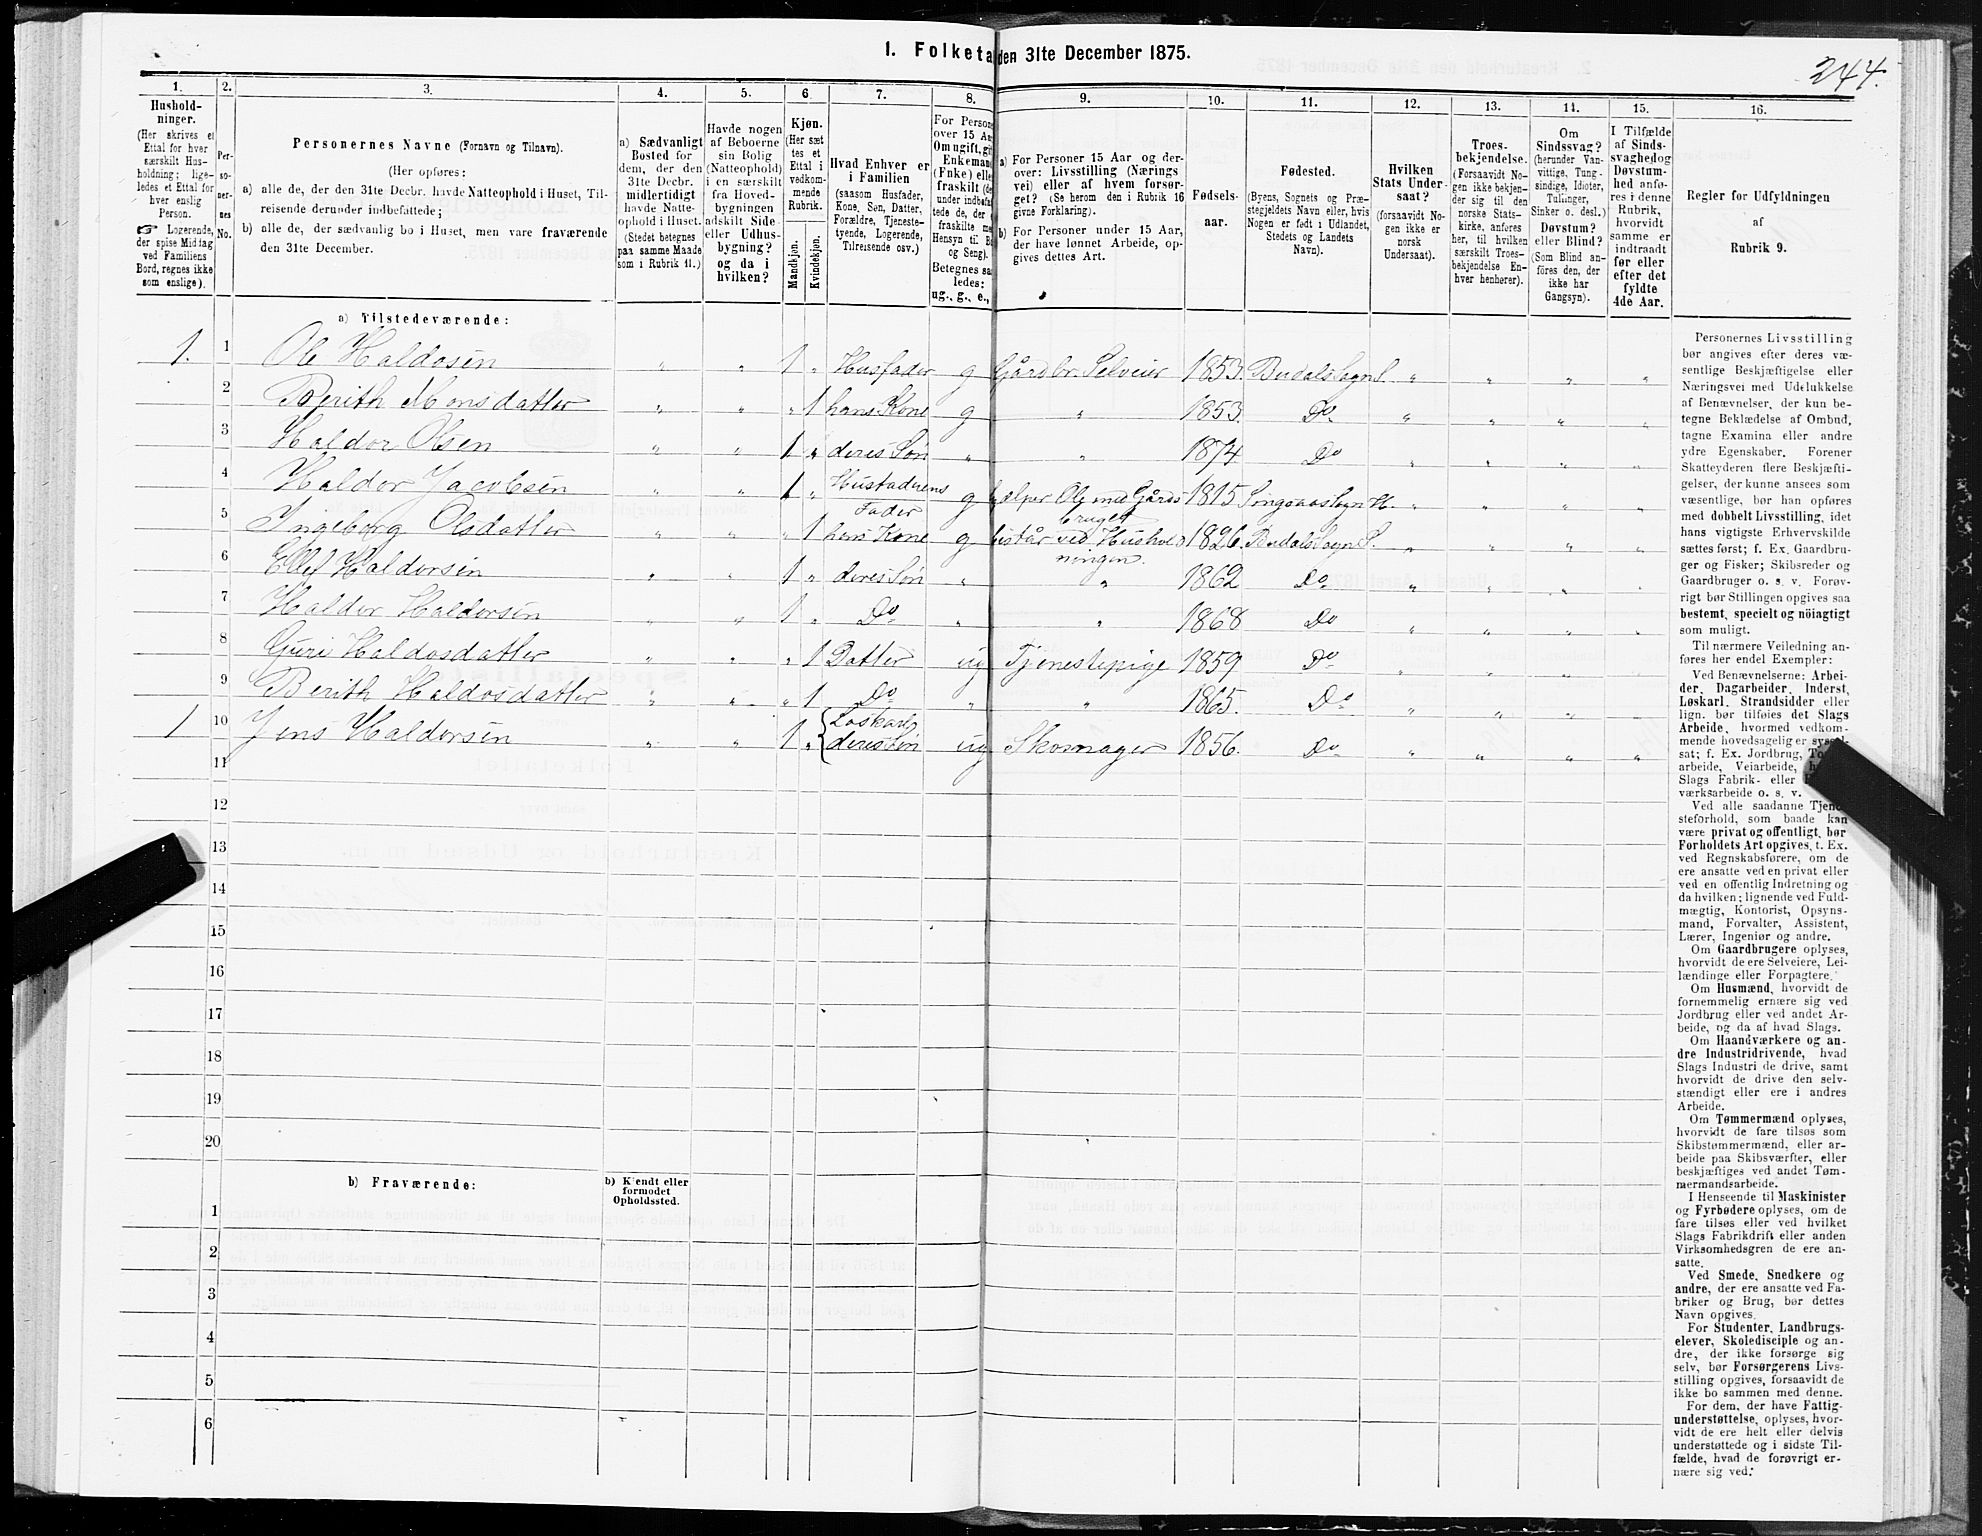 244.
1. Folketa den 31te December 1875.
1. 2. 3. 4. 5. 6 7. 8. 9. 10. 11. 12. 13. 14. 15. 16.
Hushold-
ninger.
(Her skrives et
Ettal for hver
særskilt Hus-
holdning; lige-
ledes et Ettal for
hver enslig
Person.
☞ Logerende,
der spise Middag
ved Familiens
Bord, regnes ikke
som enslige).
Per-
so-
ner-
nes
No.
Personernes Navne (Fornavn og Tilnavn).
(Her opføres:
a) alle de, der den 31te Decbr. havde Natteophold i Huset, Til-
reisende derunder indbefattede;
b) alle de, der sædvanlig bo i Huset, men vare fraværende
den 31te December.
a) Sædvanligt
Bosted for
dem, der den
31te Decbr.
midlertidigt
havde Natte-
ophold i Huset.
(Stedet betegnes
paa samme Maade
som i Rubrik 11.)
Havde nogen
af Beboerne
sin Bolig
(Natteophold)
i en særskilt
fra Hoved-
bygningen
adskilt Side-
eller Udhus-
bygning?
og da i
hvilken?
Kjøn.
(Her sæt
tes et
Ettal i
vedkom-
mende
Rubrik.
Mandkjøn.
Kvindekjøn.
Hvad Enhver er
i Familien
(saasom Husfader,
Kone, Søn, Datter,
Forældre, Tjeneste-
tyende, Logerende,
Tilreisende osv.)
For Persone
over 15 Aa
Om ugift, gif
Enkemand
(Enke) elle
fraskilt (de
under indbefa
tede de, der
fraskilte me
Hensyn til B
og Seng).
Betegnes saa
ledes:
ug., g., e.,
a) For Personer 15 Aar og der-
over: Livsstilling (Nærings
vei) eller af hvem forsør-
get? (Se herom den i Rubrik 16
givne Forklaring).
b) For Personer under 15 Aar,
der have lønnet Arbeide, op-
gives dettes Art.
Fødsels-
aar.
Fødested.
(Byens, Sognets og Præ-
stegjeldets Navn eller, hvis
Nogen er født i Udlandet,
Stedets og Landets
Navn).
Hvilken
Stats Under-
saat?
(forsaavidt No-
gen ikke er
norsk
Undersaat).
Troes-
bekjendelse.
(Forsaavidt No-
gen ikke bekjen-
der sig til den
norske Stats-
kirke, anføres
her, til hvilken
særskilt Troes-
bekjendelse En-
hver henhører).
Om
Sindssvag?
(herunder Van-
vittige, Tung-
sindige, Idioter,
Tullinger,
Sinker o. desl.)
Døvstum?
eller Blind?
(Som Blind an-
føres den, der
ikke har
Gangsyn).
I Tilfælde
af Sinds-
svaghed og
Døvstum-
hed anfø-
res i denne
Rubrik,
hvorvidt
samme er
indtraadt
før eller
efter det
fyldte
4de Aar.
Regler for Udfyldningen
af
Rubrik 9.
a) Tilstedeværende:
1. 1 Ole Haldosen " " 1 " Husfader g Gårdbr. Selveier 1853. Budals Sogn S. " " " "
2 Berith Monsdatter " " " 1 hans Kone g " 1853. Do " " " "
3 Haldor Olsen " " 1 " deres Søn " " 1874. Do " " " "
4 Haldor Jacobsen " " 1 " Husfaderens Fader g hjælper Ole med Gårds bruget 1815. Singsaas Sogn H. " " " "
5 Ingeborg Olsdatter " " " 1 hans Kone g bistår ved Hushol ningen. 1826. Budals Sogn S. " " " "
6 Ellef Haldorsen " " 1 " deres Søn " " 1862 Do " " " "
7 Haldor Haldorsen " " 1 " Do " " 1868 Do " " " "
8 Guri Haldosdatter " " " 1 Datter ug Tjenestepige 1859 Do " " " "
9 Berith Haldosdatter " " " 1 Do " " 1865. Do " " " "
1 10 Jens Haldorsen " " 1 " Løskarl deres Søn ug Skomager 1856. Do " " " "
11
12
13
14
15
16
17
18
19
20
b) Fraværende: b) Kjendt eller
formodet
Opholdssted.
1
2
3
4
5
6
Personernes Livsstilling
bør angives efter deres væ-
sentlige Beskjæftigelse eller
Næringsvei med Udelukkelse
af Benævnelser, der kun be-
tegne Beklædelse af Ombud,
tagne Examina eller andre
ydre Egenskaber. Forener
Skatteyderen flere Beskjæfti-
gelser, der kunne ansees som
væsentlige, bør han opføres
med dobbelt Livsstilling, idet
hans vigtigste Erhvervskilde
sættes først; f. Ex. Gaardbru-
ger og Fisker; Skibsreder og
Gaardbruger o. s. v. Forøv-
rigt bør Stillingen opgives saa
bestemt, specielt og nöiagtigt
som muligt.
Til nærmere Veiledning an-
føres her endel Exempler:
Ved Benævnelserne: Arbei-
der, Dagarbeider, Inderst,
Løskarl, Strandsidder eller
lign. bør tilføies det Slags
Arbeide, hvormed vedkom-
mende hovedsagelig er syssel-
sat; f. Ex. Jordbrug,
arbeide, Veiarbeide,
Slags Fabrik- eller
værksarbeide o. s. v.
Ved alle saadanne Tjene-
steforhold, som baade kan
være privat og offentligt, bør
Forholdets Art opgives, t. Ex.
ved Regnskabsførere, om de
ere ansatte ved en privat eller
ved en offentlig Indretning og
da hvilken; lignende ved Fuld-
mægtig, Kontorist, Opsyns-
mand, Forvalter, Assistent,
Lærer, Ingeniør og andre.
Om Gaardbrugere oplyses,
hvorvidt de ere Selveiere, Lei-
lændinge eller Forpagtere.
Om Husmænd, hvorvidt de
fornemmelig ernære sig ved
Jordbrug eller ved andet Ar-
beide, og da af hvad Slags.
Om Haandværkere og an-
dre Industridrivende, hvad
Slags Industri de drive, samt
hvorvidt de drive den selv-
stændigt eller ere i andres
Arbeide.
Om Tømmermænd oplyses,
hvorvidt de fare tilsøs som
Skibstømmermænd, eller ar-
beide paa Skibsværfter, eller
beskjæftiges ved andet Tøm-
mermandsarbeide.
I Henseende til Maskinister
og Fyrbødere oplyses, om de
fare tilsøs eller ved hvilket
Slags Fabrikdrift eller anden
Virksomhedsgren de ere an-
satte.
Ved Smede, Snedkere og
andre, der ere ansatte ved Fa-
briker og Brug, bør dettes
Navn opgives.
For Studenter, Landbrugs-
elever, Skoledisciple og an-
dre, der ikke forsørge sig
selv, bør Forsørgerens Livs-
stilling opgives, forsaavidt de
ikke bo sammen med denne.
For dem, der have Fattig-
understøttelse, oplyses, hvor-
vidt de ere helt eller delvis
understøttede og i sidste Til-
fælde, hvad de forøvrigt er-
nære sig ved.